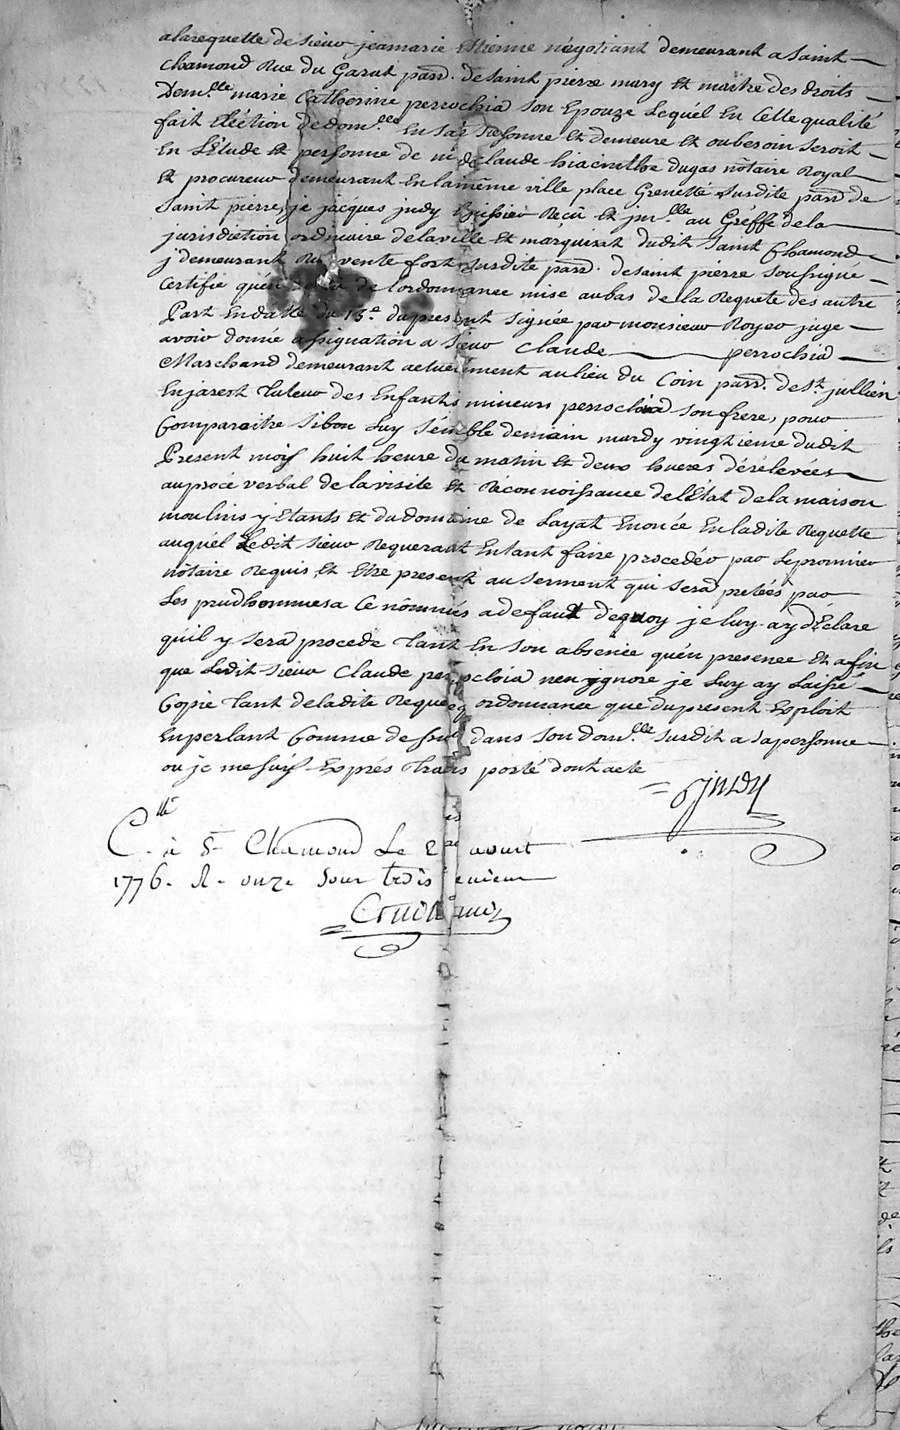 alarequette de sieur jeanmarie Etienne négotiant demeurant a Saint
Chamond Rue du Garat parr. de Saint pierre mary Et maitre des droits
Dem.lle marie Catherine perrochia son Epouze Lequél En Cette qualité
fait Eléction de dom.lle En sa personne et demeure et ou besoin seroit
En L'Etude Et personne de m.e claude hiacinthe dugas nôtaire Royal
Et procureur demeurant En la même ville place Grenette surdite parr. de
Saint pierre, je jacques judy huissier Recû Et jm.lle au Gréffe de la
jurisdiction ordinaire de la ville Et marquisat dudit Saint Chamond
j demeurant Rue vente fort surdite parr. de saint pierre soussigné
Certifie qu'en de l'ordonnance mise au bas de la Requete des autre
Part En datte du 13.e du present signée par monsieur Royer juge
avoir donné assignation a sieur Claude perrochia
Marchand demeurant actuellement au lieu du Coin parr. de St. jullien
En jarest tuteur des Enfants mineurs perrochia son frere, pour
Comparaitre si bon Luy sémble demain mardy vingtieme dudit
Present mois huit heure du matin Et deux hueres dérélevées
au procé verbal de la visite Et Réconnoissance de l'Etat de la maison
moulins y Etants Et du domaine de Layat Enoncé En ladite Requette
auquél Ledit sieur Requerant Entant faire procedér par Le premier
nôtaire Requis, Et Etre present au serment qui sera pretées par
Les prudhommes a Ce nômmés a defaut de quoy je luy ay d'Eclare
quil y sera procede tant En son absence qu'en presence Et afin
que Ledit sieur Claude perrochia nen ygnore je Luy ay Laissé
Copie tant de ladite Requete ordonnance que du present Exploit
En parlant Comme dessus dans son dom.lle surdit a sa personne
ou je me suis Exprés trans porté dont acte
judy
C.lle à St Chamond Le 2 aoust
1776. R. onze sour trois denieur